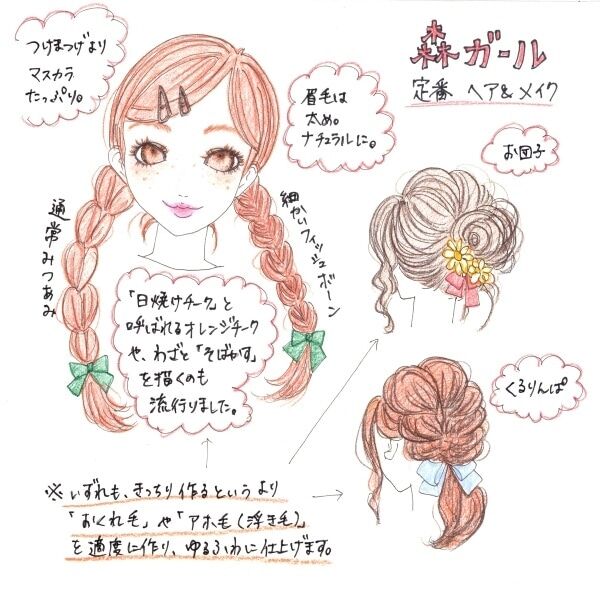 森ガール
定番 ヘア&メイク
つけまつげより
マスカラ
たっぷり。
眉毛は
太め。
ナチュラルに。
お団子
通常みつあみ
細かいフィッシュボーン
「日焼けチーク」と
呼ばれるオレンジチーク
や、わざと「そばかす」
を描くのも
流行りました。
くるりんぱ
※いずれも、きっちり作るというより
「おくれ毛」や「アホ毛(浮き毛)」
を適度に作り、ゆるふわに仕上げます。